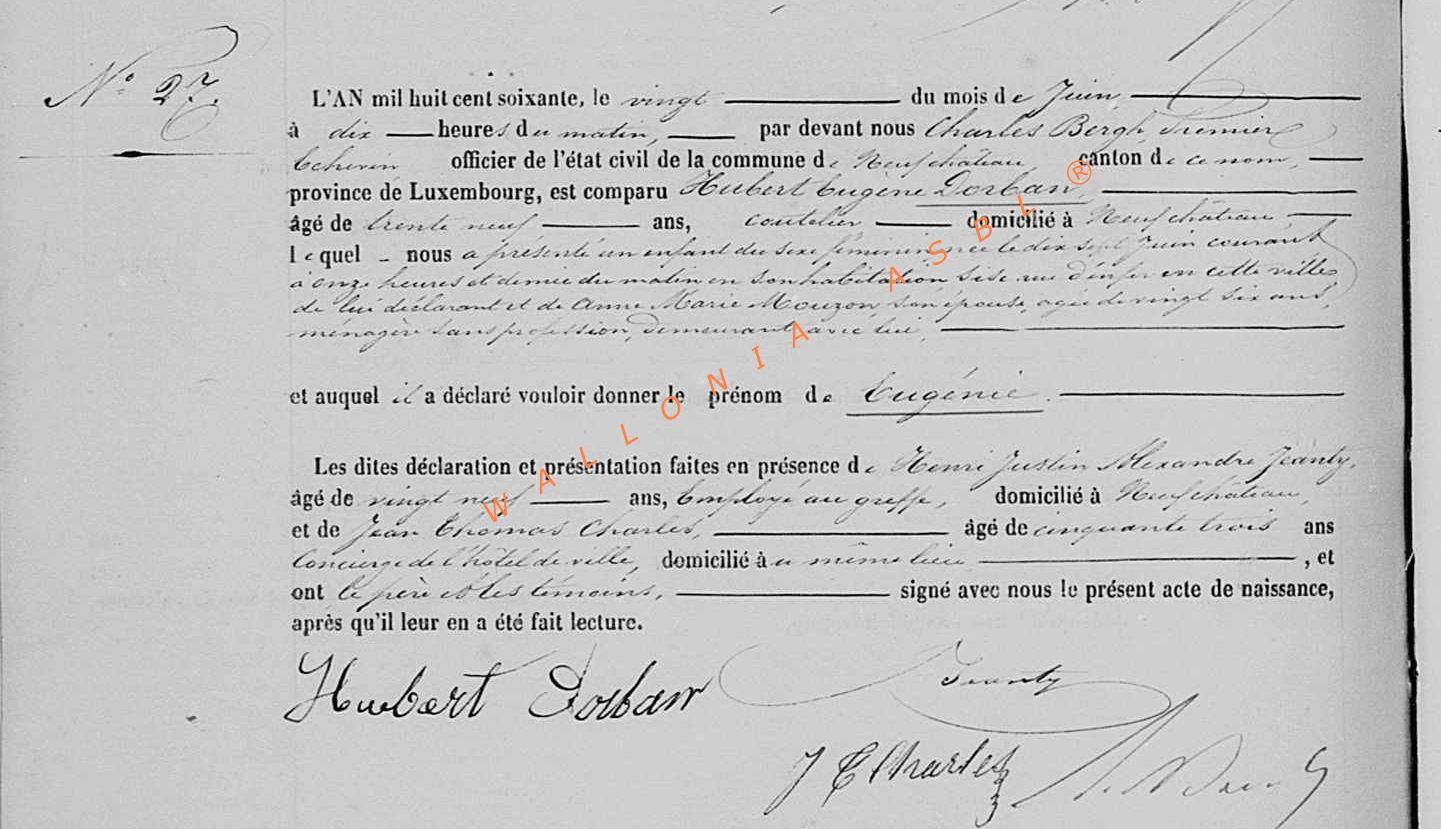 N° 27.
L'AN mil huit cent soixante, le vingt du mois de Juin
à dix heures du matin, par devant nous Charles Bergh, Premier
Echevin officier de l'état civil de la commune de Neufchâteau, canton de ce nom,
province de Luxembourg, est comparu Hubert Eugène Dorban,
âgé de trente neuf ans, coutelier domicilié à Neufchâteau
lequel nous a présenté un enfant du sexe féminin née le dix sept Juin courant
à onze heures et demie du matin en son habitation sise rue d'enfer en cette ville
de lui déclarant et de Anne Marie Mouzon, son épouse, agée de vingt six ans,
ménagère sans profession, demeurant avec lui,
et auquel il a déclaré vouloir donner le prénom de Eugénie.
Les dites déclaration et présentation faites en présence de Henri Justin Alexandre Jeanty,
âgé de vingt neuf ans, Employé au greffe, domicilié à Neufchâteau,
et de Jean Thomas Charles, âgé de cinquante trois ans
Concierge de l'hôtel de ville, domicilié au même lieu , et
ont le père et les témoins, signé avec nous le présent acte de naissance,
après qu'il leur en a été fait lecture.
Hubert Dorban Jeanty
J T Charles
WALLONIA ASBL ®